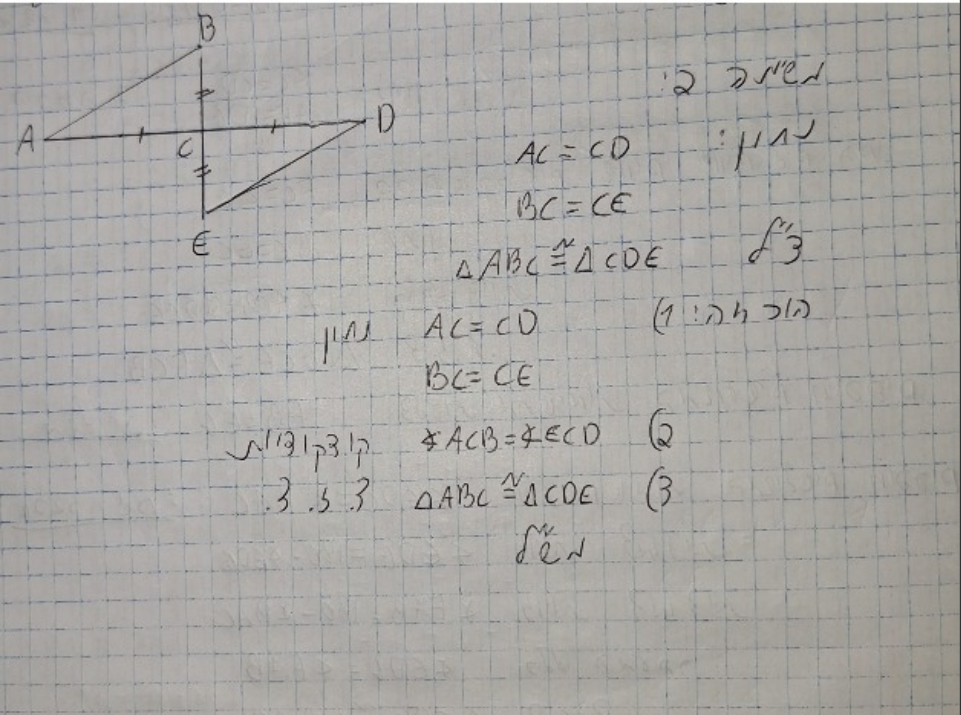 B
A
C
D
E
משימה ב:
נתון: AC = CD
BC = CE
צ"ל △ABC ≅ △CDE
הוכחה: 1) AC = CD נתון
BC = CE
2) ∢ACB = ∢ECD קודקודיות
3) △ABC ≅ △CDE צ. ז. צ.
מש"ל